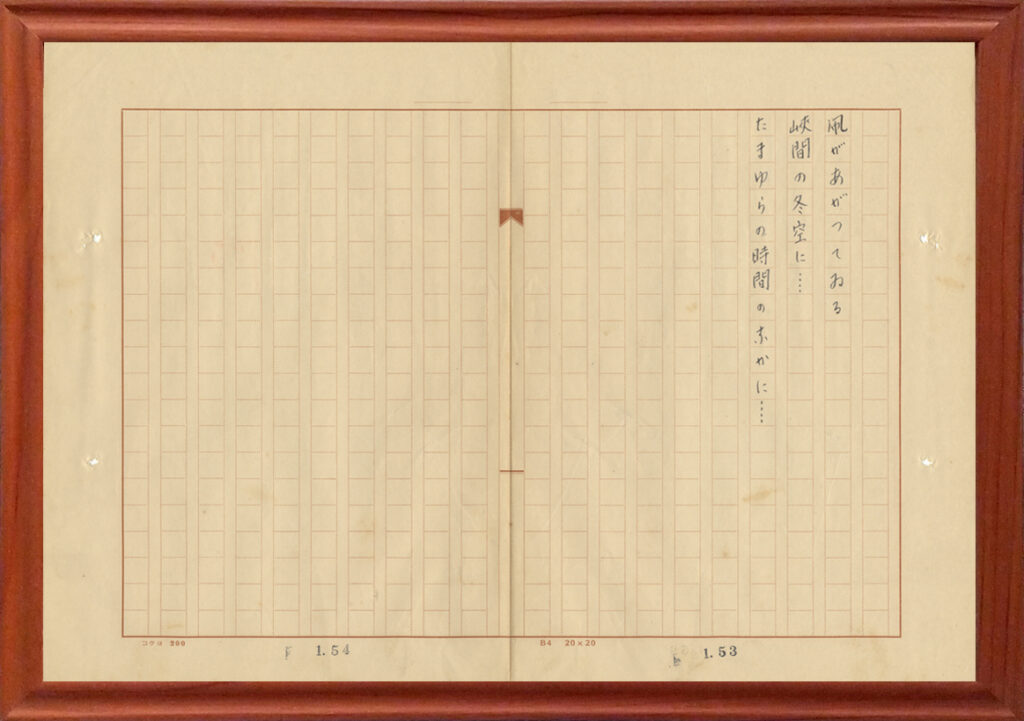 凧があがつてゐる
峽間の冬空に……
たまゆらの時間のなかに……
B4 20×20
1.53
コクヨ 260
1.54